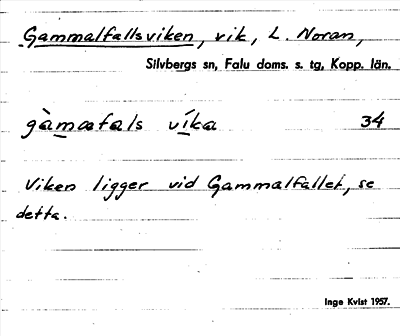 Gammalfallsviken, vik, L. Noran,
Silvbergs sn, Falu doms. s. tg, Kopp. län.
gàmafals víka 34
Viken ligger vid Gammalfallet, se
detta.
Inge Kvist 1957.